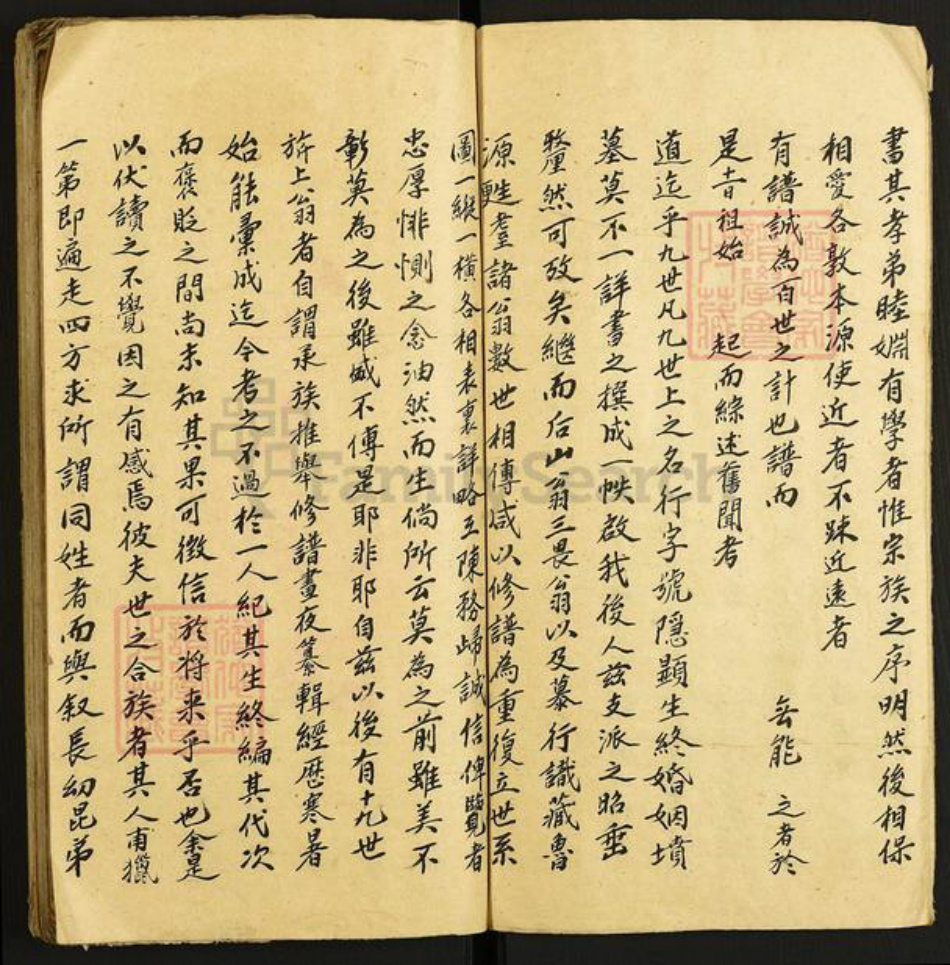 書其孝弟睦婣有學者惟宗族之序明然後相保
相愛各敦本源使近者不踈近遠者
有譜誠為百世之計也譜而 無能 之者於
是十一世祖始 起而綜述舊聞考
道迄乎九世凡九世上之名行字號隱顯生終婚姻墳
墓莫不一詳書之撰成一帙啟我後人兹支派之昭垂
釐然可攷矣繼而后山翁三畏翁以及慕行識藏魯
源甦羣諸翁數世相傳咸以修譜為重復立世系
圖一縱一橫各相表裏詳略互陳務歸誠信俾覽者
忠厚悱惻之念油然而生倘所云莫為之前雖美不
彰莫為之後雖盛不傳是耶非耶自兹以後有十九世
旂上翁者自謂承族推舉修譜晝夜纂輯經歷寒暑
始能彙成迄今考之不過於一人紀其生終編其代次
而褒貶之間尚未知其果可徵信於將來乎否也余是
以伏讀之不覺因之有感焉彼夫世之合族者其人甫獵
一第即遍走四方求所謂同姓者而與叙長幼昆弟
FamilySearch